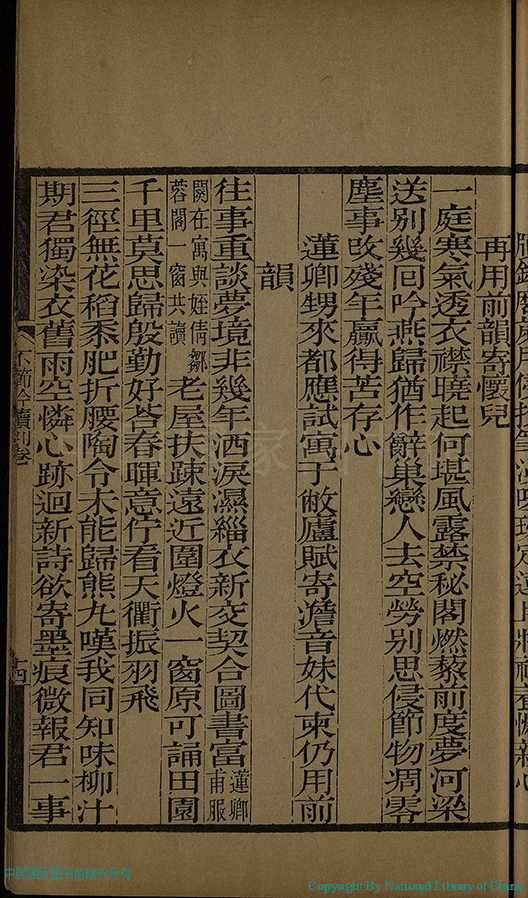 再用前韻寄懷兒
一庭寒氣透衣襟曉起何堪風露禁秘閣燃藜前度夢河梁
送別幾回吟燕歸猶作辭巢戀人去空勞別思侵節物凋零
塵事攺殘年贏得苦存心
蓮卿甥來都應試寓于敝廬賦寄澹音妹代柬仍用前
韻
往事重談夢境非幾年洒淚濕緇衣新交契合圖書富蓮卿甫服
闋在寓與姪倩鄒蓉閣一窗共讀老屋扶踈遠近圍燈火一窗原可誦田園
千里莫思歸殷勤好荅春暉意佇看天衢振羽飛
三徑無花稻黍肥折腰陶令未能歸熊丸嘆我同知味柳汁
期君獨染衣舊雨空憐心跡迥新詩欲寄墨痕微報君一事
中国国家图书馆
Copyright By National Library of China